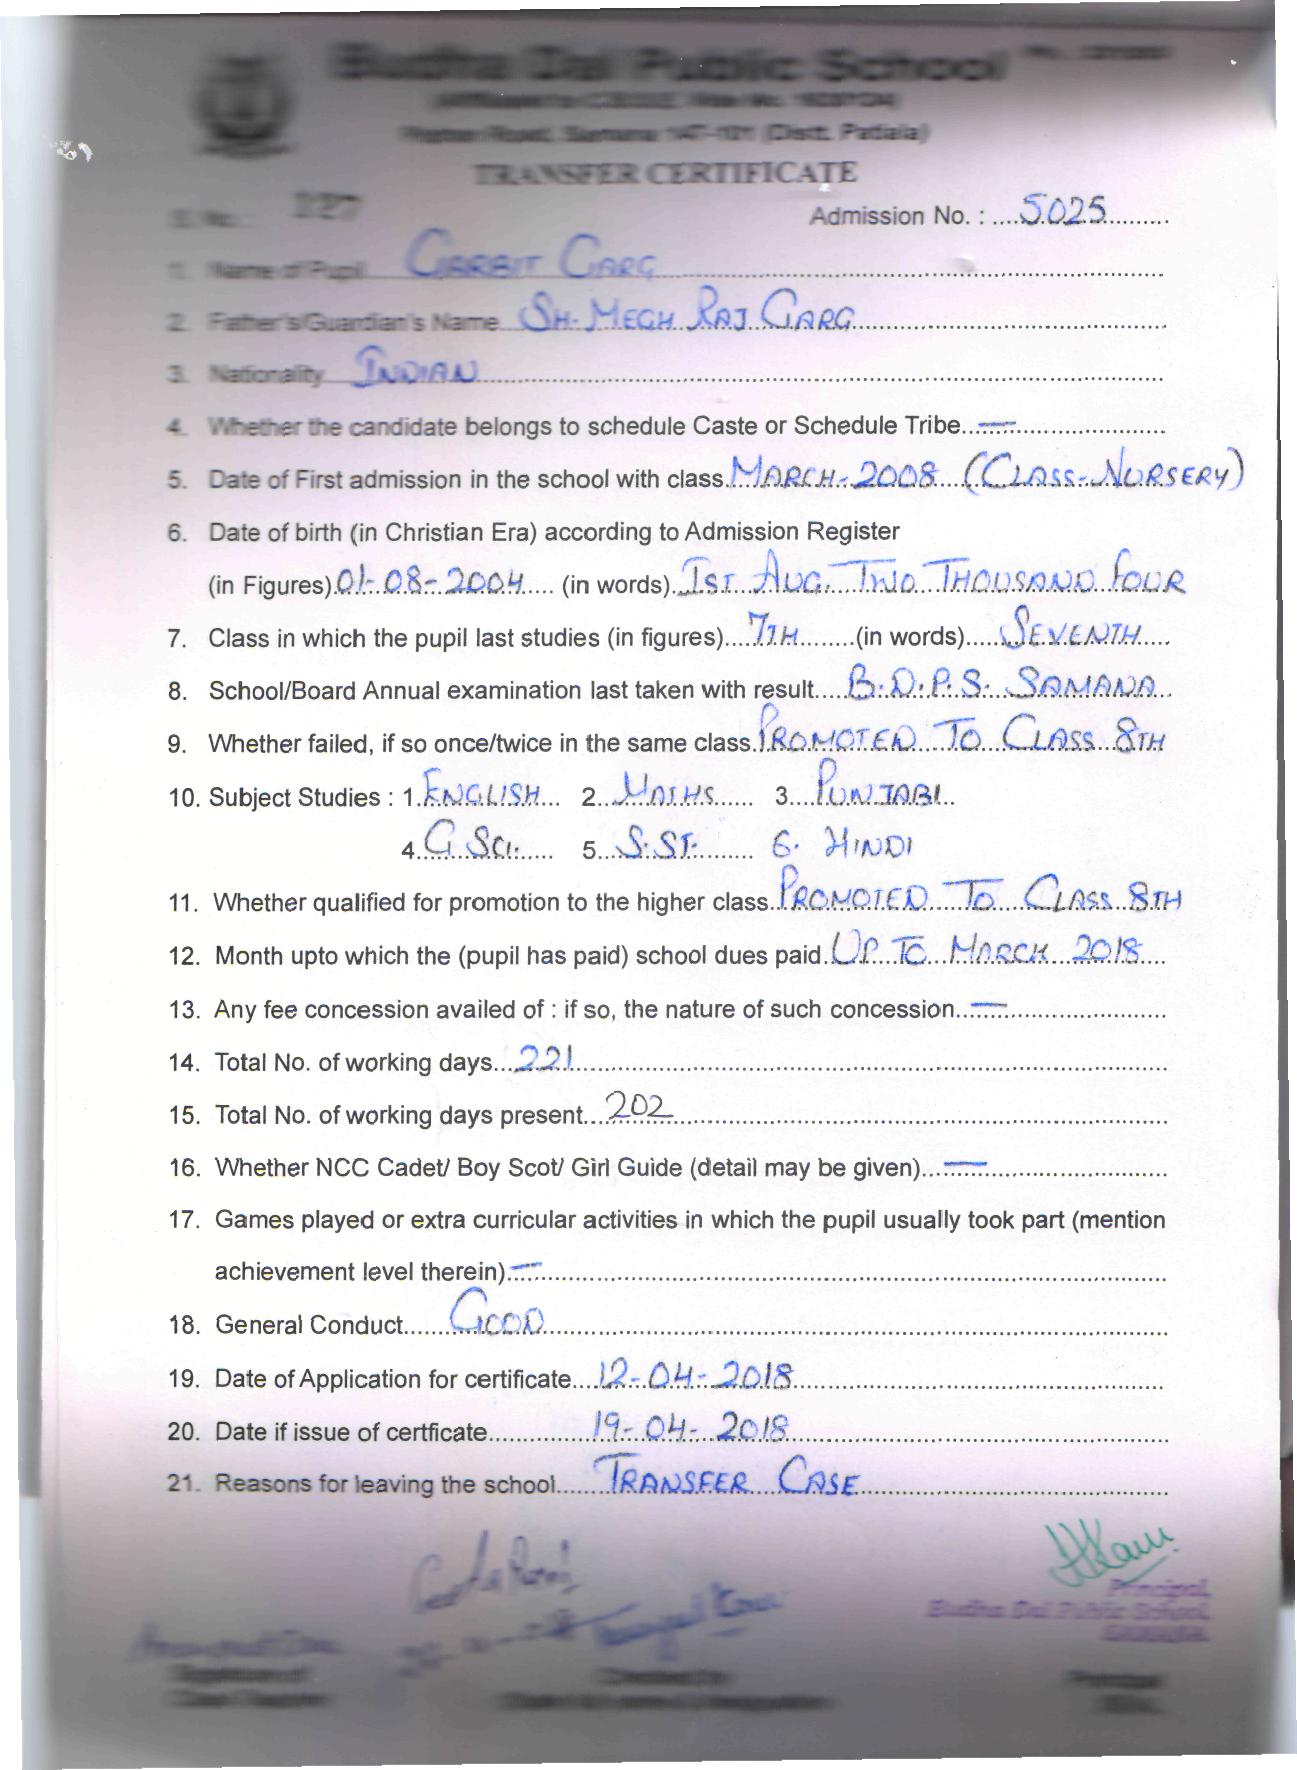 Budha Dal Public School
Samana 147-101 (Distt. Patiala)
TRANSFER CERTIFICATE
127
Admission No. : 5025
1. Name of Pupil GARBIT GARG
2. Father's/Guardian's Name SH. MEGH RAJ GARG
3. Nationality INDIAN
4. Whether the candidate belongs to schedule Caste or Schedule Tribe —
5. Date of First admission in the school with class MARCH-2008 (CLASS-NURSERY)
6. Date of birth (in Christian Era) according to Admission Register
(in Figures) 01-08-2004 (in words) IST. AUG. TWO THOUSAND FOUR
7. Class in which the pupil last studies (in figures) 7TH (in words) SEVENTH
8. School/Board Annual examination last taken with result B.D.P.S. SAMANA
9. Whether failed, if so once/twice in the same class PROMOTED TO CLASS 8TH
10. Subject Studies : 1. ENGLISH 2. MATHS 3. PUNJABI
4. G. SCI. 5. S.ST. 6. HINDI
11. Whether qualified for promotion to the higher class PROMOTED TO CLASS 8TH
12. Month upto which the (pupil has paid) school dues paid UP TO MARCH 2018
13. Any fee concession availed of : if so, the nature of such concession —
14. Total No. of working days 221
15. Total No. of working days present 202
16. Whether NCC Cadet/ Boy Scot/ Girl Guide (detail may be given) —
17. Games played or extra curricular activities in which the pupil usually took part (mention
achievement level therein) —
18. General Conduct GOOD
19. Date of Application for certificate 12-04-2018
20. Date if issue of certficate 19-04-2018
21. Reasons for leaving the school TRANSFER CASE
Principal
Budha Dal Public School
Principal